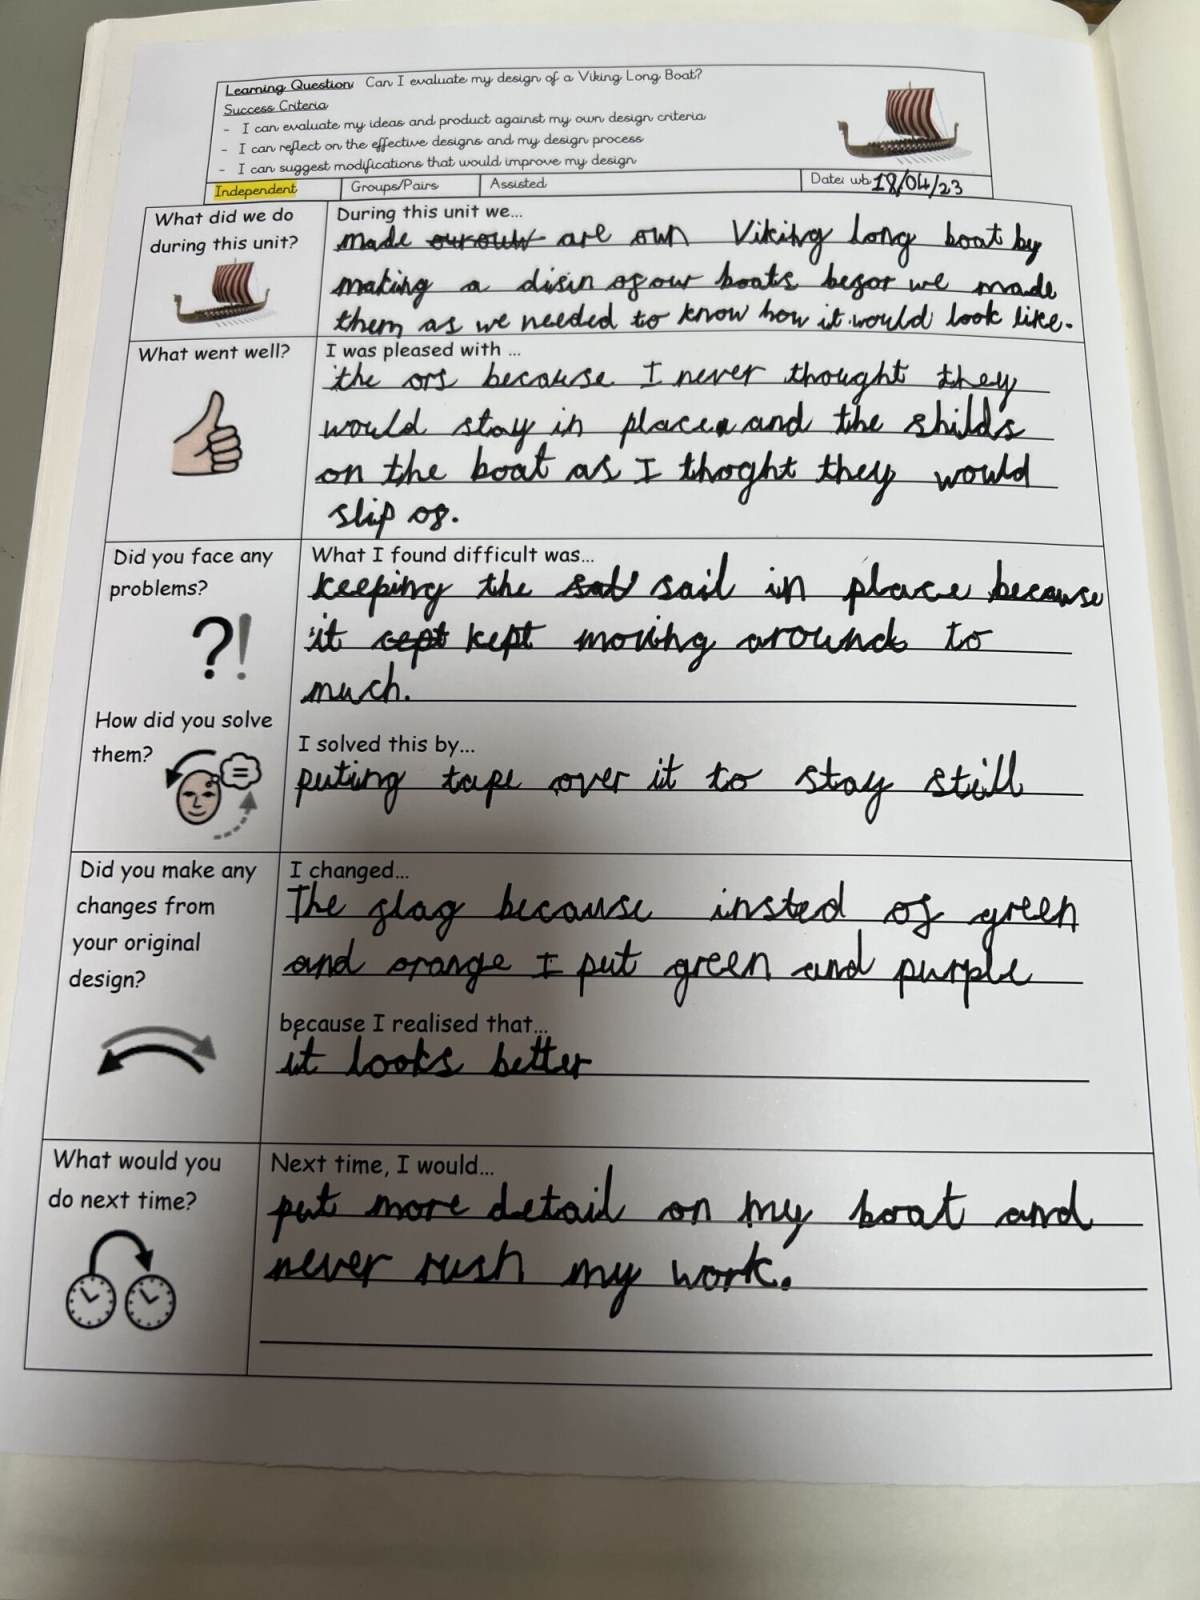 Learning Question Can I evaluate my design of a Viking Long Boat?
Success Criteria
- I can evaluate my ideas and product against my own design criteria
- I can reflect on the effective designs and my design process
- I can suggest modifications that would improve my design
Independent Groups/Pairs Assisted Date: wb 18/04/23
What did we do
during this unit?
During this unit we...
made our ouw are own Viking long boat by
making a disin of our boats befor we made
them as we needed to know how it would look like.
What went well?
I was pleased with ...
the ors because I never thought they
would stay in place and the shilds
on the boat as I thoght they would
slip of.
Did you face any
problems?
?!
How did you solve
them?
What I found difficult was...
keeping the sat sail in place because
it cept kept moving around to
much.
I solved this by...
puting tape over it to stay still
Did you make any
changes from
your original
design?
I changed...
The flag because insted of green
and orange I put green and purple
because I realised that...
it looks better
What would you
do next time?
Next time, I would...
put more detail on my boat and
never rush my work.